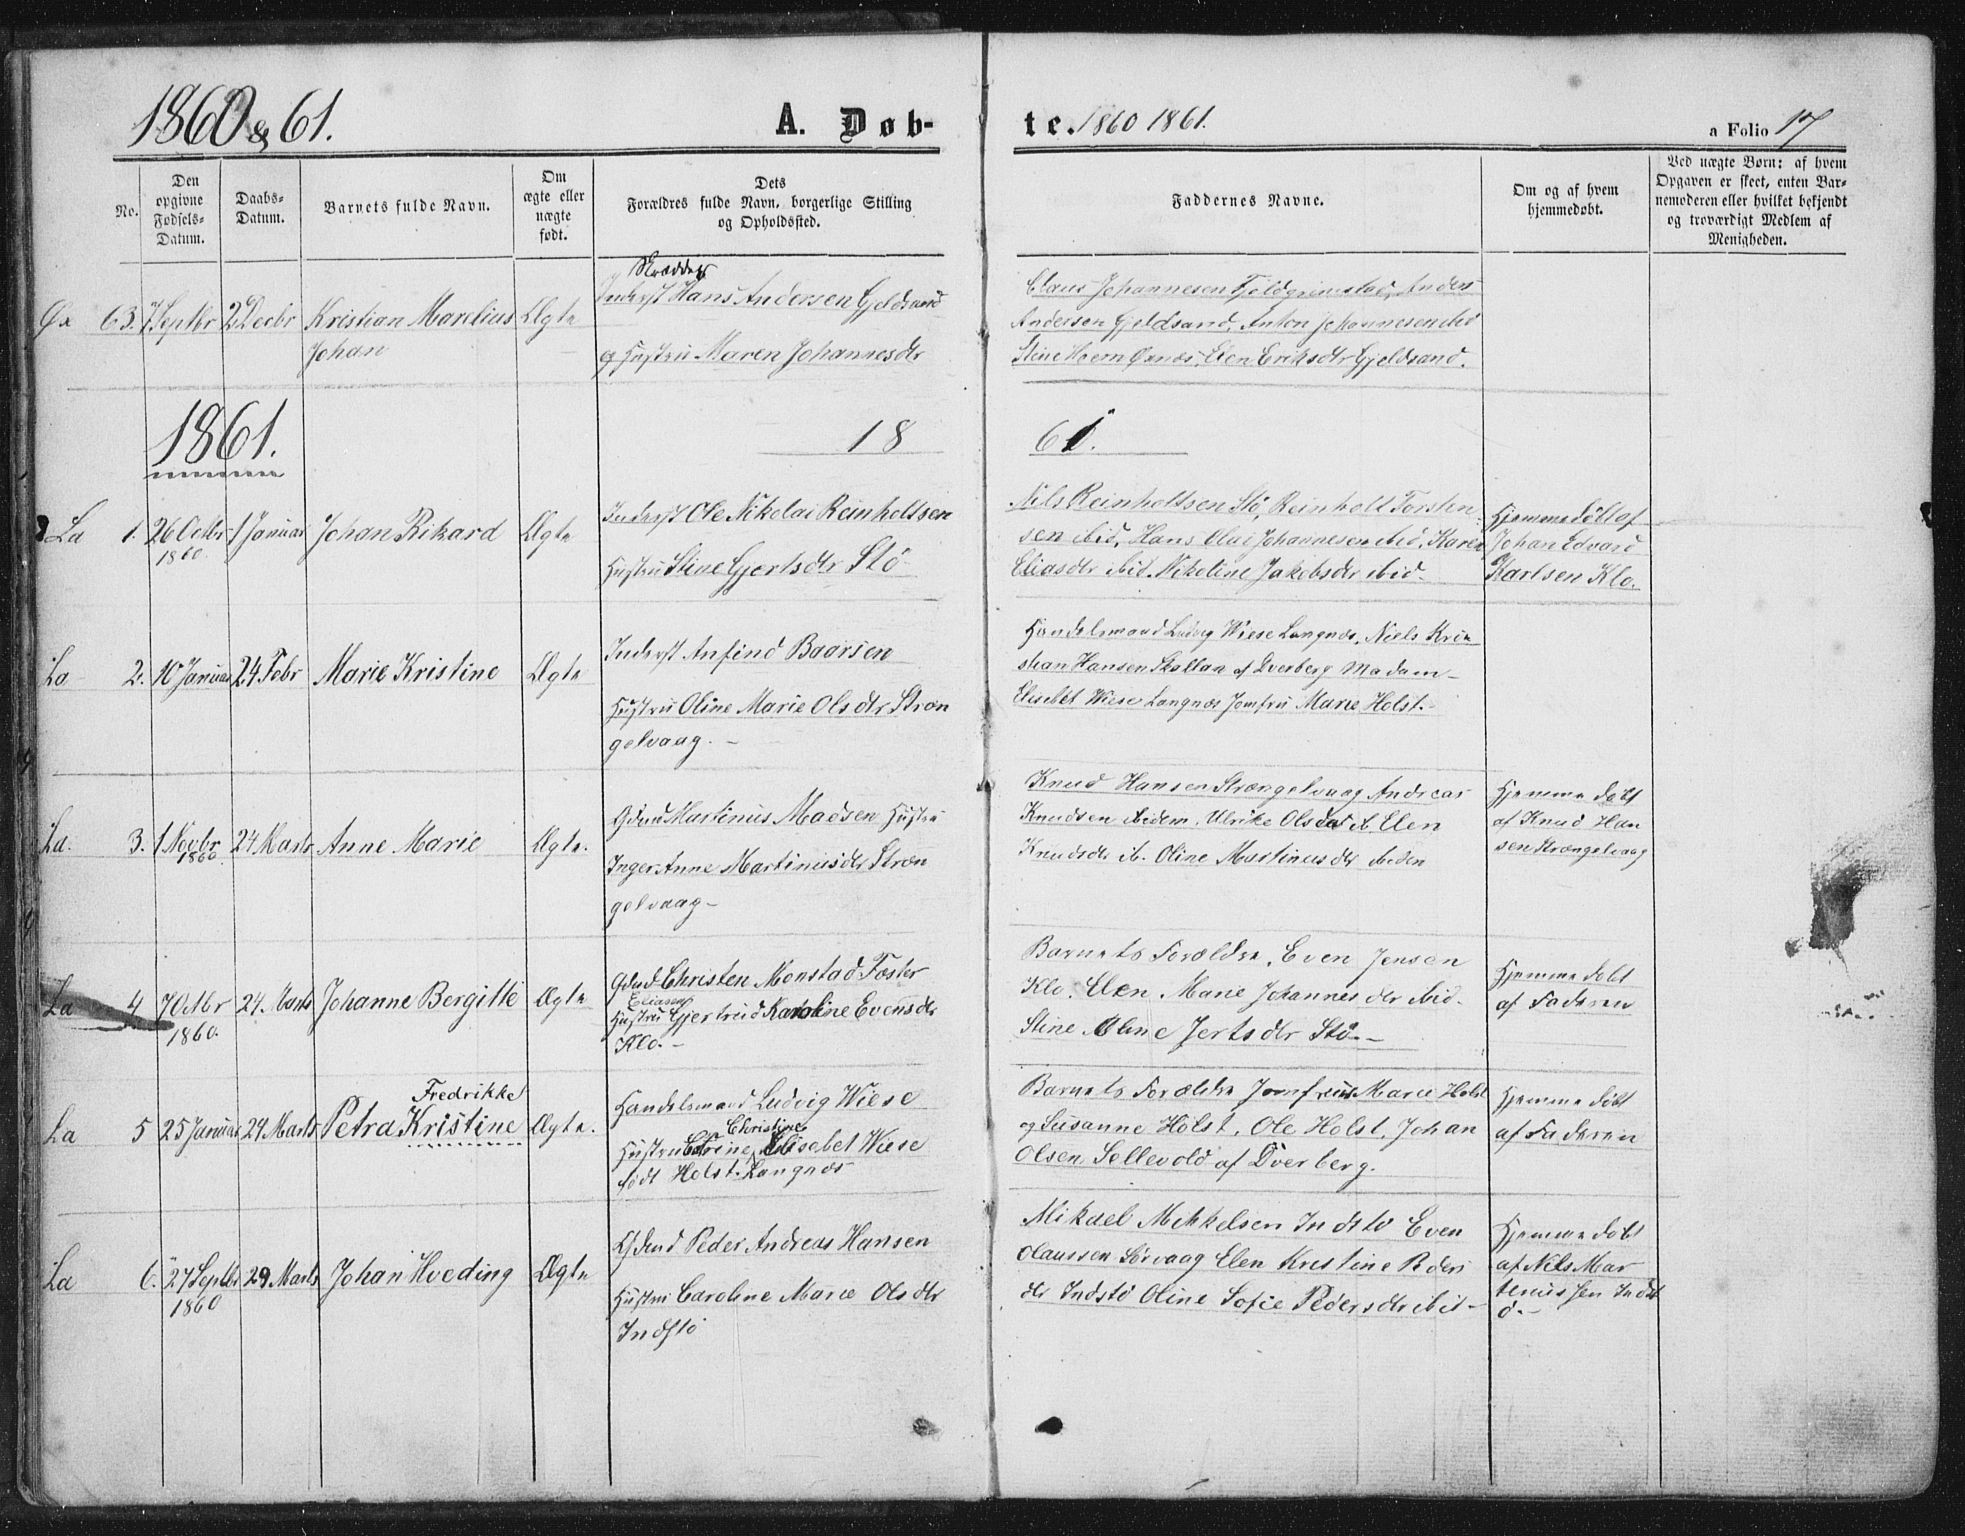 1860 & 61.
A. Døb-
te. 1860 1861.
a Folio 17
No.
Den
opgivne
Fødsels-
Datum.
Daabs-
Datum.
Barnets fulde Navn.
Om
ægte eller
uægte
født.
Dets
Forældres fulde Navn, borgerlige Stilling
og Opholdssted.
Faddernes Navne.
Om og af hvem
hjemmedøbt.
Ved uægte Børn: af hvem
Opgaven er skeet, enten Bar-
nemoderen eller hvilket bekjendt
og troværdigt Medlem af
Menigheden.
Øx 63. 7 Septbr 2 Decbr Kristian Marelius
Johan
Ægte
Skrædder
Inderst Hans Andersen Gjeldsand
og Hustru Maren Johannesdr
Claus Johannesen Fjeldgrimstad, Anders
Andersen Gjeldsand, Anton Johannesen ibid
Stine Øxnæs, Elen Eriksdr Gjeldsand.
1861.
18
61.
La 1. 26 Octbr 1 Januar Johan Rikard Ægte
1860.
Inderst Ole Nikolai Reinholtsen
Hustru Stine Gjertsdr Stö
Nils Reinholtsen Stö, Reinholt Torsten
sen ibid, Hans Olai Johannesen ibid, Karen
Eliasdr ibid. Nikoline Jakobsdr ibid.
Hjemmedöbt af
Johan Edvard
Karlsen Klo.
La 2. 10 Januar 24 Febr Marie Kristine Ægte
Inderst Anfind Baarsen
Hustru Oline Marie Olsdr Stron
gelvaag.
Handelsmand Ludvig Wiese Langnæs, Niels Kri
stian Hansen Skallan af Dverberg Madam
Elisebet Wiese Langnæs Jomfru Marie Holst.
La. 3. 1 Novbr 24 Marts Anne Marie Ægte.
1860.
Gdmd Martinus Madsen Hustru
Inger Anne Martinusdr Stron
gelvaag
Knud Hansen Strængelvaag Andreas
Knudsen ibidem. Ulrike Olsdr ib. Elen
Knudsdr ib. Oline Martinusdr ibidem
Hjemmedöbt
af Knud Han
sen Strængelvaag
La 4 7 Octbr 24 Marts Johanne Bergitte Ægte
1860.
Gdmd Christen Monstad Foster
Eliasen
Hustru Gjertrud Karoline Evensdr
Klo.
Barnets Forældre, Even Jensen
Klo. Elen Marie Johannesdr ibid.
Stine Oline Jertsdr Stö
Hjemmedöbt
af Faderen
La 5 25 Januar 24 Marts Petra Kristine Ægte.
Fredrikke
Handelsmand Ludvig Wiese
Christine
Hustru Elisebet Wiese
født Holst. Langnæs
Barnets Forældre Jomfruerne Marie Holst
og Susanne Holst, Ole Holst, Johan
Olsen Sellevold af Dverberg.
Hjemmedöbt
af Faderen
La 6. 27 Septbr 29 Marts Johan Hveding Ægte
1860
Gdmd Peder Andreas Hansen
Hustru Caroline Marie Olsdr
Indstö
Mikael Mikkelsen Indstö Even
Olaussen Sörvaag Elen Kristine Peders
dr Indstö Oline Sofie Pedersdr ibid
Hjemmedöbt
af Nils Mar
teniussen Indst
ö.